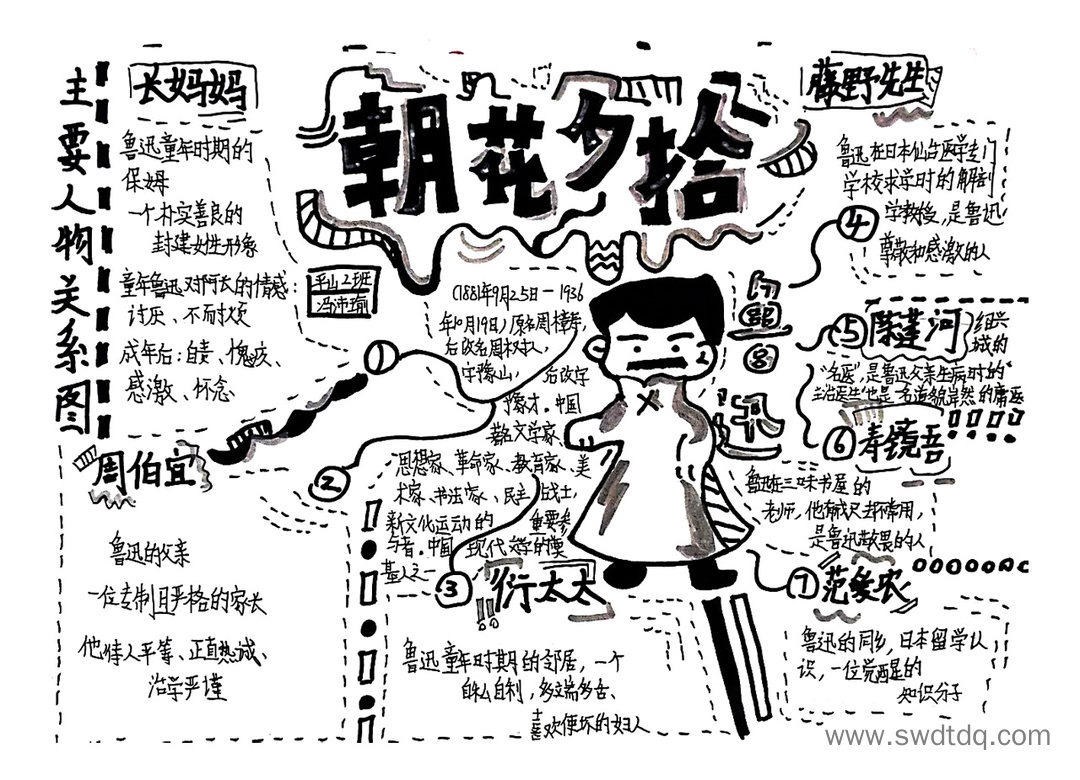 朝花夕拾
主要人物关系图
长妈妈
鲁迅童年时期的
保姆
一个朴实善良的
封建女性形象
童年鲁迅对阿长的情感:
讨厌、不耐烦
成年后:自责、愧疚、
感激、怀念
平山2班
①
周伯宜
鲁迅的父亲
一位专制且严格的家长
他待人平等、正直热诚、
治学严谨
②
(1881年9月25日-1936
年10月19日)原名周樟寿,
后改名周树人,
字豫山,后改字
豫才。中国
著名文学家、
思想家、革命家、教育家、美
术家、书法家、民主战士,
新文化运动的重要参
与者。中国现代文学的奠
基人之一
③
衍太太
鲁迅童年时期的邻居,一个
自私自利,多嘴多舌、
喜欢使坏的妇人
鲁迅
藤野先生
鲁迅在日本仙台医学专门
学校求学时的解剖
学教授,是鲁迅
尊敬和感激的人
④
⑤
陈莲河
绍兴
城的
"名医",是鲁迅父亲生病时的"
主治医生"也是一名道貌岸然的庸医
⑥
寿镜吾
鲁迅在三味书屋的
老师,他有戒尺却不常用,
是鲁迅敬畏的人
⑦
范爱农
鲁迅的同乡,日本留学认
识,一位觉醒的
知识分子
www.swdtdq.com